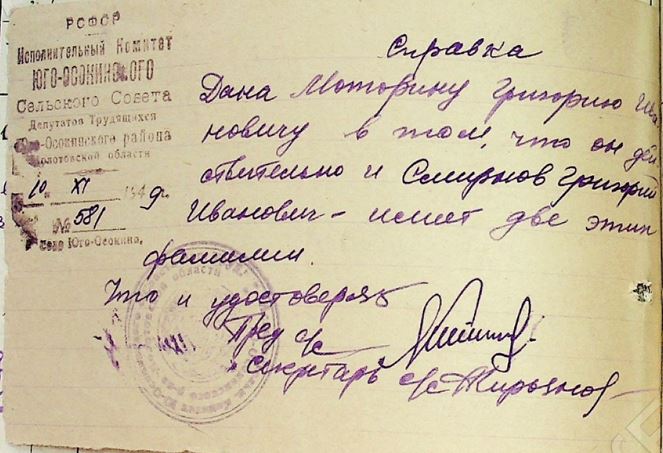 РСФСР
Исполнительный Комитет
ЮГО-ОСОКИНСКОГО
Сельского Совета
Депутатов Трудящихся
Юго-Осокинского района
Молотовской области
10 XI 1949 г.
№ 581
село Юго-Осокино,
Справка
Дана Моторину Григорию Ива
новичу в том, что он дей
ствительно и Смирнов Григорий
Иванович - имеет две этих
фамилии.
Что и удостоверяет
Пред с/с
Секретарь с/с